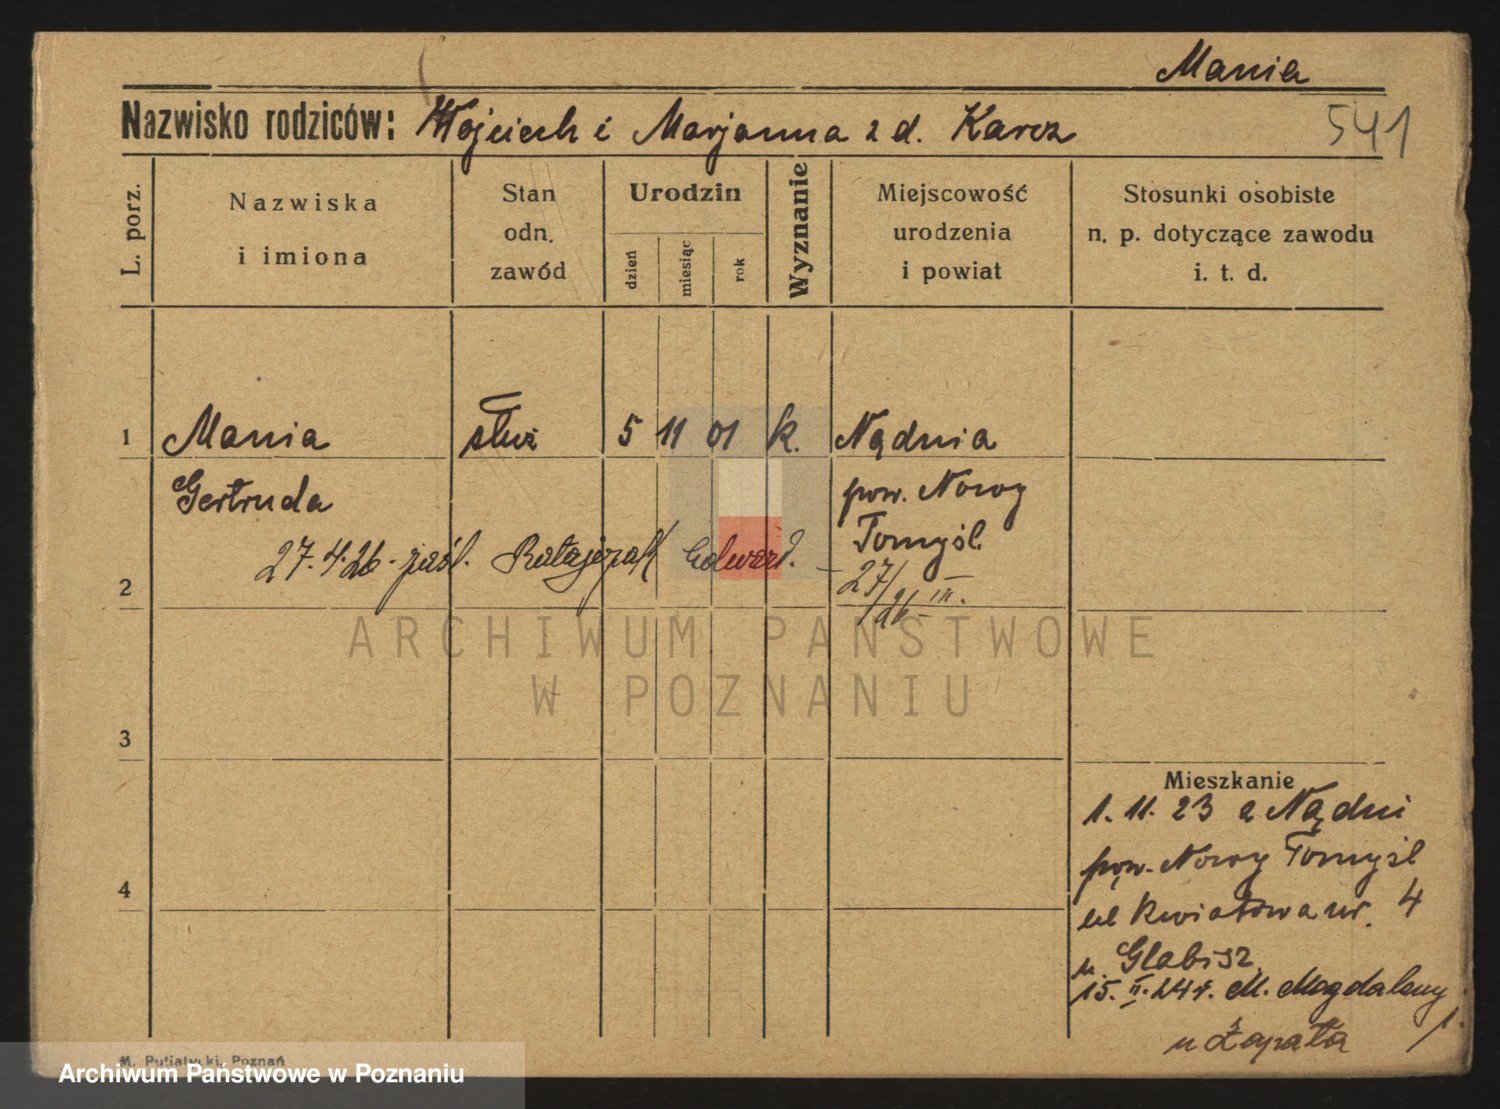 Mania
Nazwisko rodziców: Wojciech i Marjanna z d. Karcz
541
L. porz.
Nazwiska
i imiona
Stan
odn.
zawód
Urodzin
dzień
miesiąc
rok
Wyznanie
Miejscowość
urodzenia
i powiat
Stosunki osobiste
n. p. dotyczące zawodu
i. t. d.
1 Mania służ 5 11 01 k. Nądnia
Gertruda pow. Nowy
Tomyśl
27.4.26. zaśl. Ratajczak Edward. – 27/
2 /26 – III.
ARCHIWUM PAŃSTWOWE
W POZNANIU
3
Mieszkanie
1. 11. 23 z Nądni
pow. Nowy Tomyśl
4
ul Kwiatowa nr. 4
u. Glabisz
15. II. 24 r. M. Magdaleny 1.
u Zapała
M. Putiatycki, Poznań
Archiwum Państwowe w Poznaniu